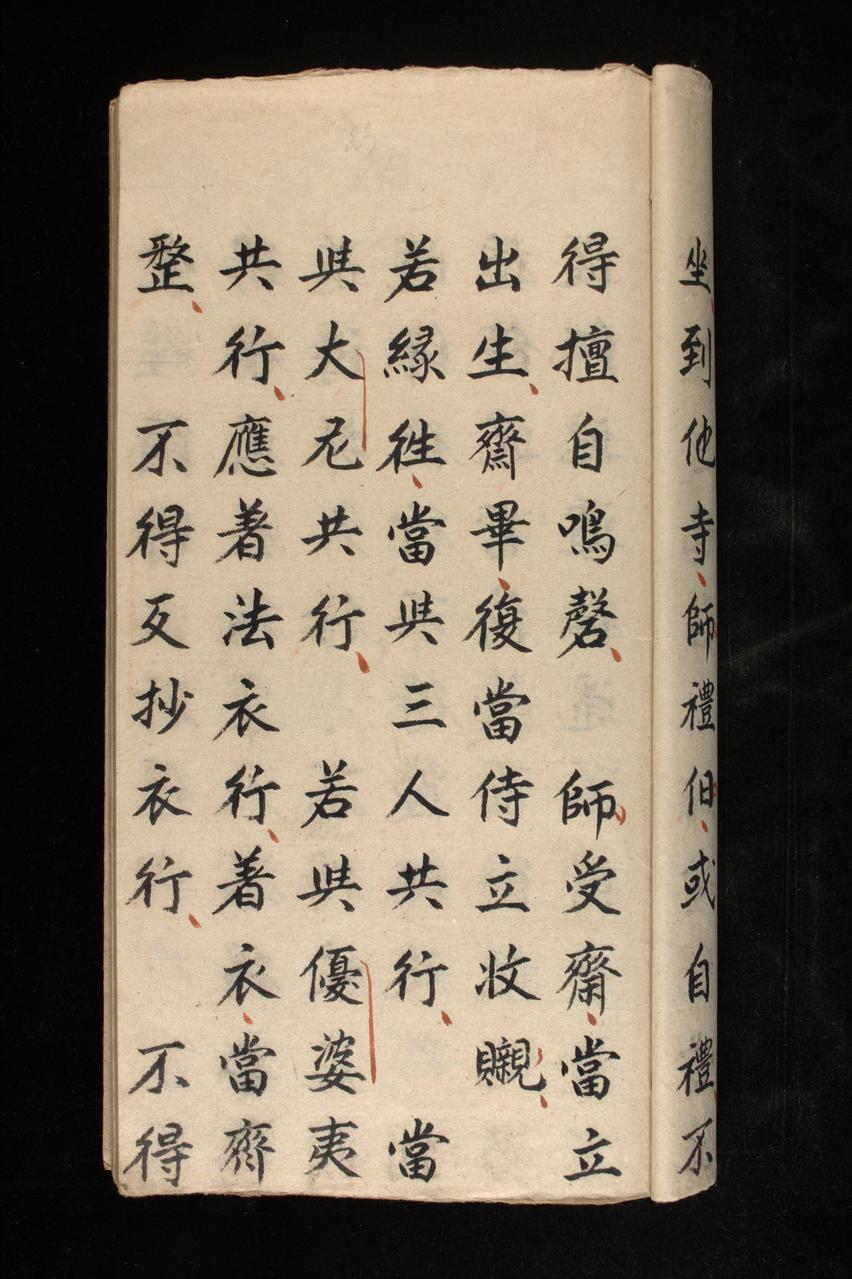 坐到他寺師禮佀或自禮不
得擅自鳴磬　師受齋當立
出生齋畢復當侍立收䞋
若緣徃當與三人共行　當
與大尼共行　若與優婆夷
共行應著法衣行著衣當齊
整　不得反抄衣行　不得